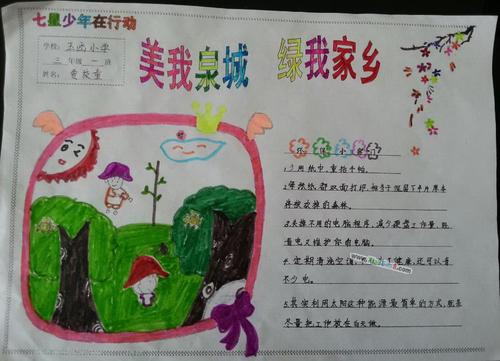 七星少年在行动
学校: 玉函小学
三年级 一 班
姓名:
美我泉城 绿我家乡
环保小
1.少用纸巾,重拾手帕。
2.每张纸都双面打印,相当于保留下半片原本
将被砍掉的森林。
3.关掉不用的电脑程序,减少硬盘工作量,既
省电又维护你的电脑。
4.定期清洗空调,不仅为了健康,还可以省
不少电。
5.其实利用太阳这种能源最简单的方式,就是
尽量把工作放在白天做。